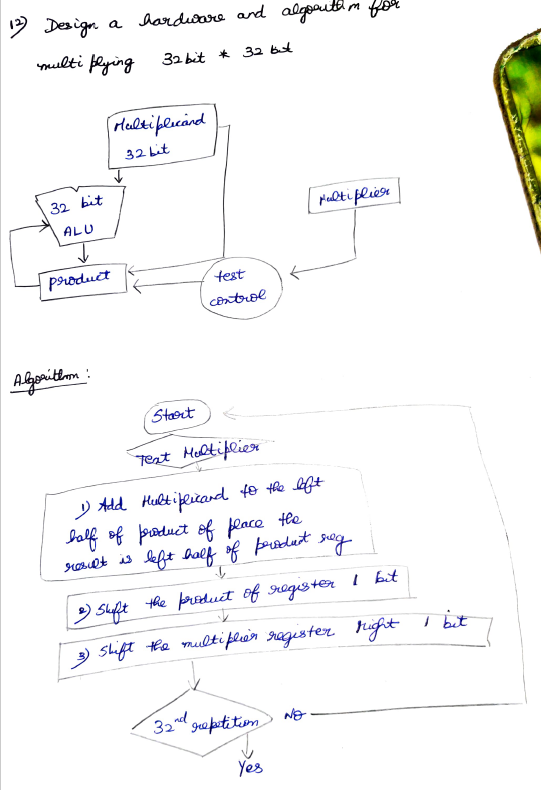 12) Design a hardware and algorithm for
multiplying 32 bit * 32 bit
Multiplicand
32 bit
32 bit
ALU
Multiplier
product
test
control
Algorithm :
Start
Test Multiplier
1) Add Multiplicand to the left
half of product of place the
result is left half of product reg
2) Shift the product of register 1 bit
3) Shift the multiplier register right 1 bit
32nd repetition
NO
Yes